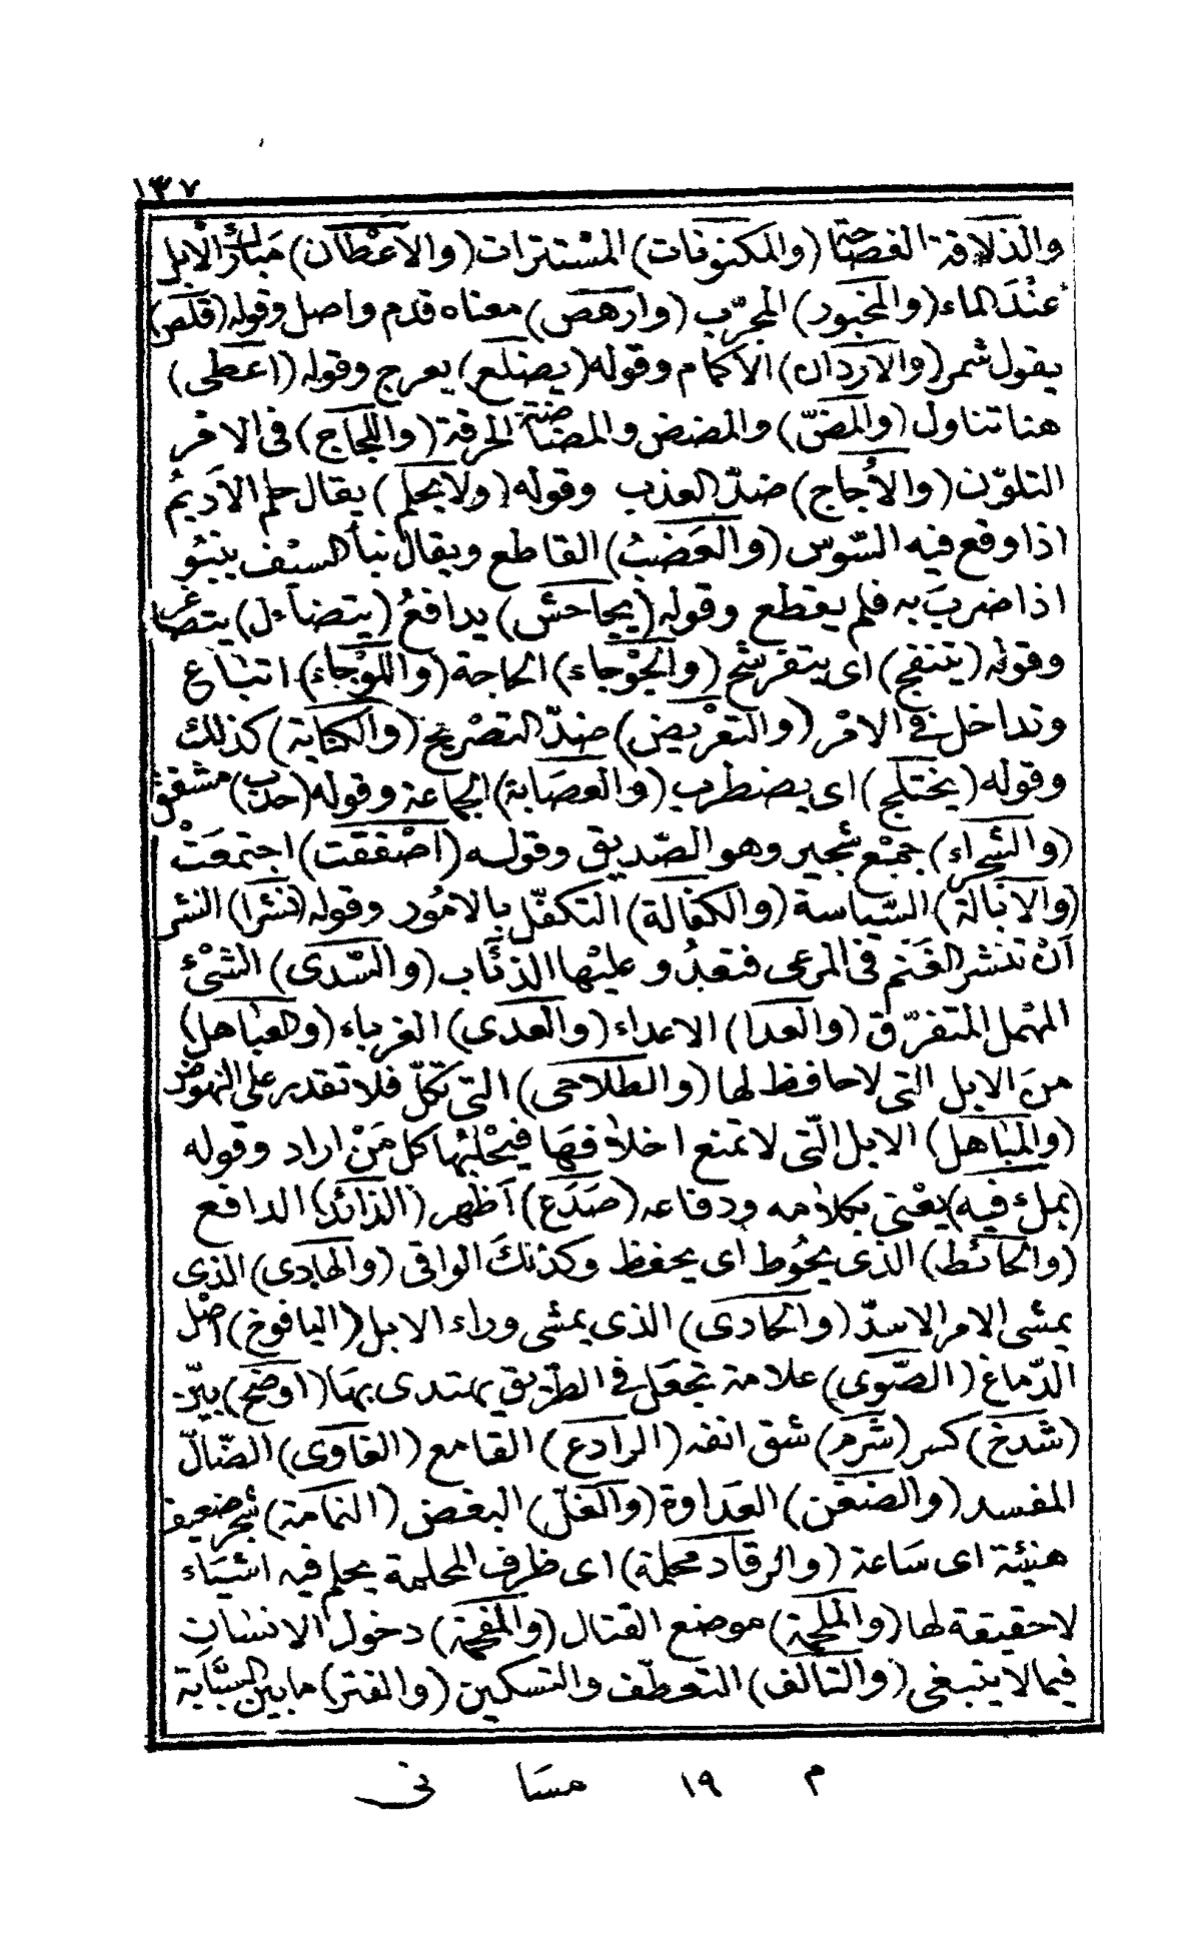 ١٣٧
والذلاقة الفصاحة (والمكنونات) المستترات (والاعْطان) مَبارك الابل
عنْدَ الماء (والمخبور) المجرّب (وارهص) معناه قدم واصل وقوله (قلص)
يقول شمر (والاردان) الاكمام وقوله (يضلع) يعرج وقوله (اعطى)
هنا تناول (والمضّ) والمضض والمضاضة الحرقة (واللجاج) فى الامر
التلوّن (والأجاج) ضدّ العذب وقوله (ولا يحلم) يقال حلم الاديمُ
اذا وقع فيه السّوس (والعَضبُ) القاطع ويقال نبأ السيْف ينبُو
اذا ضربَ به فلم يقطع وقوله (يجاحش) يدافعُ (يتضاءل) يتصاغر
وقوله (يتنفج) اى يتفرشح (والحَوْجاء) الحاجة (واللوْجاء) اتباع
وتداخل فى الامْر (والتعْريض) ضدّ التصْريح (والكناية) كذلك
وقوله (يختلج) اى يضطرب (والعصَابة) الجماعة وقوله (حدب) مشفق
(والشجراء) جمْع شجير وهو الصّديق وقوله (اصْفقت) اجتمعَتْ
(والايالة) السّياسة (والكفالة) التكفّل بالامُور وقوله (نشرا) النشر
اَنْ تنشر الغَنم فى المرعى فتعدُو عليْها الذئاب (والسّدى) الشئْ
المهْمل المتفرّق (والعدا) الاعداء (والعدى) الغرباء (والعباهل)
منَ الابل التى لا حافظ لها (والطلاحى) التى تكلّ فلا تقدر على النهوض
(والمباهل) الابل الّتى لا تمنع اخلافهَا فيحْلبُها كل مَنْ اراد وقوله
(بملء فيه) يعْنى بكلامه ودفاعه (صَدَع) اَظهر (الذائد) الدافع
(والحائط) الذى يحُوط اى يحفظ وكذلكَ الواقى (والهادى) الذى
يمشى الامر الاسدّ (والحادى) الذى يمشى وراء الابل (اليافوخ) اصْل
الدّماغ (الصّوى) علامة تجعَل فى الطريق يهتدى بهَا (اوضح) بيّن
(شدَخ) كسر (شرم) شق انفه (الرادع) القامع (الغاوى) الضّالّ
المفسد (والضغن) العَداوة (والغلّ) البغض (الثمامة) شجر ضعيف
هنيئة اى سَاعة (والرقاد محلمة) اى ظرف المحلمة يحلم فيه اشيَاء
لا حقيقة لها (والملحمة) موضع القتال (والمقحمة) دخول الانسان
فيما لا ينبغى (والتألف) التعطّف والتسكين (والفتر) ما بين السبّابة
م ١٩ مسَا نى